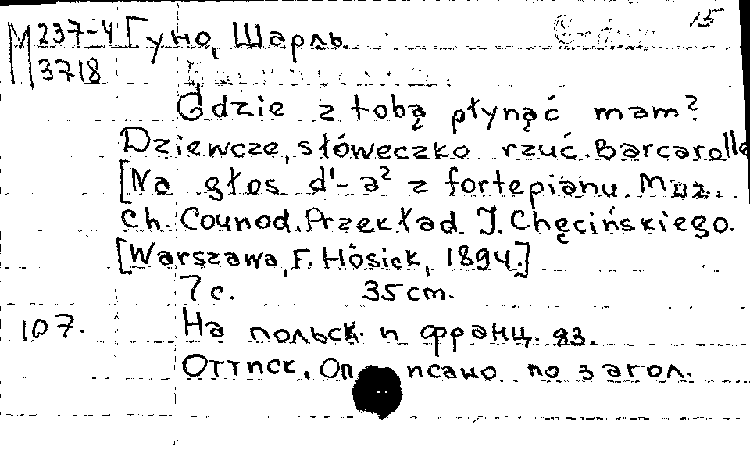 15
М 237-4 Гуно, Шарль.
3718
Gdzie z tobą płynąć mam?
Dziewczę, słóweczko rzuć. Barcarolle
[Na głos d¹-a² z fortepianu. Muz.
Ch. Gounod. Przekład J. Chęcińskiego.
[Warszawa, F. Hösick, 1894.]
7 с. 35 cm.
107. На польск. и франц. яз.
Оттиск. Описано по загол.